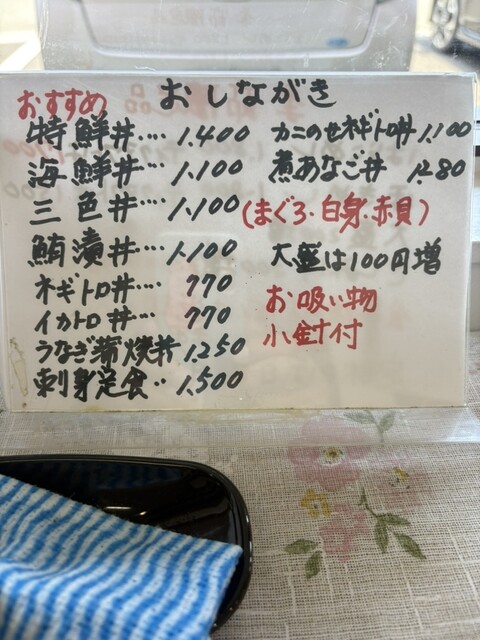 おしながき
おすすめ
特鮮丼‥‥ 1,400
海鮮丼‥‥ 1,100
三色丼‥‥ 1,100
(まぐろ・白身・赤貝)
鮪漬丼‥‥ 1,100
ネギトロ丼‥‥ 770
イカトロ丼‥‥ 770
うなぎ蒲焼丼 1,250
刺身定食‥ 1,500
カニのせネギトロ丼 1,100
煮あなご丼 1,280
大盛は100円増
お吸い物
小針付